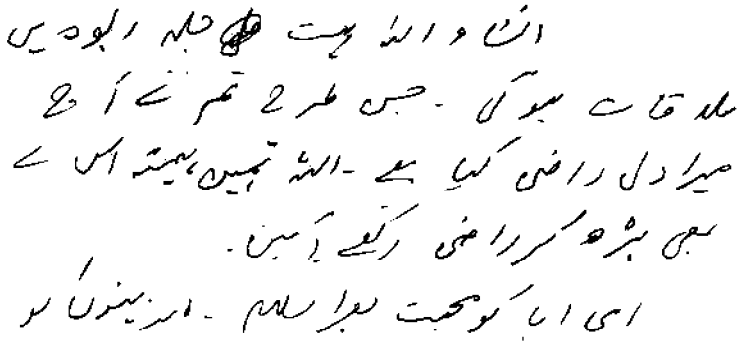 انشاء اللہ بہت جلد ربوہ میں
ملاقات ہوگی ۔ جس طرح تم نے آج
میرا دل راضی کیا ہے ۔ اللہ تمہیں ہمیشہ اس سے
بھی بڑھ کر راضی رکھے آمین ۔
امی ابا کو محبت بھرا سلام ۔ اور بہنوں کو